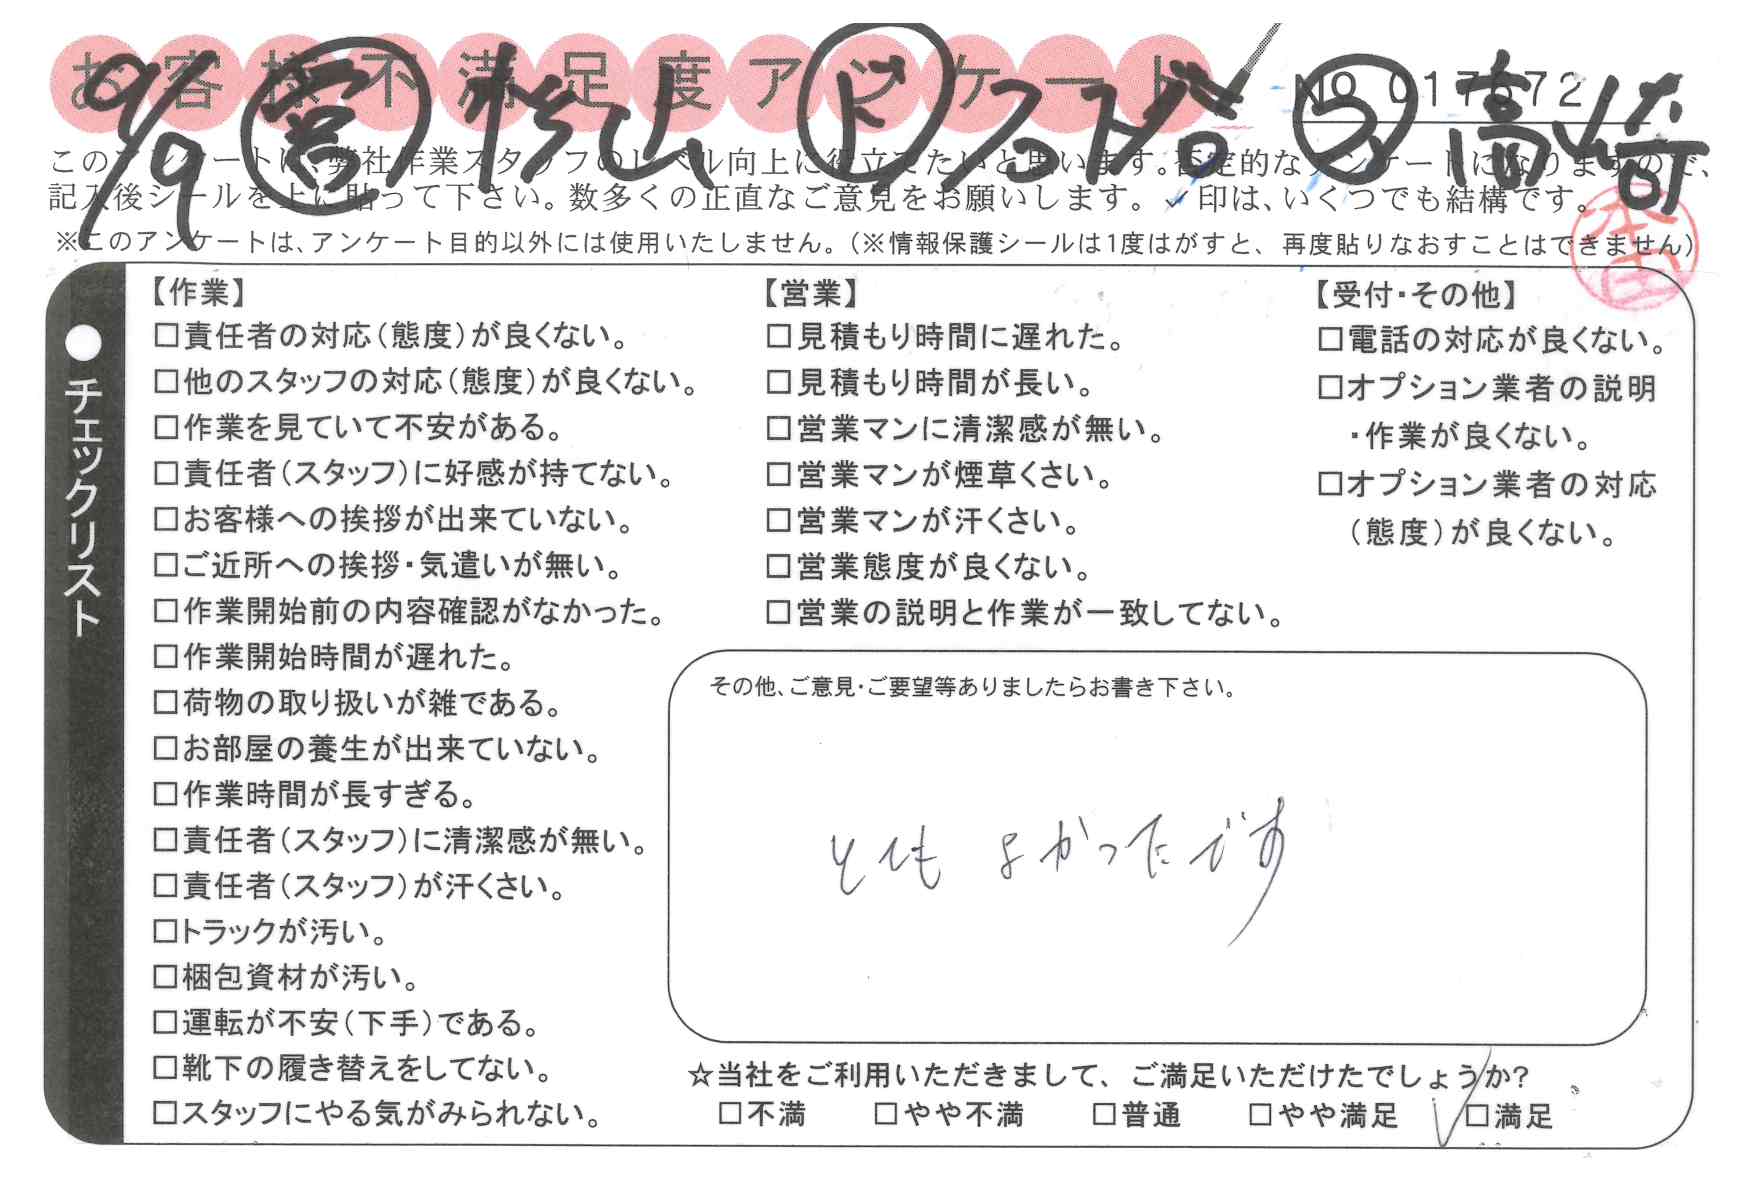 お客様不満足度アンケート
No 017672
9/9 営 杉山 ド ス 高崎
このアンケートは、弊社作業スタッフのレベル向上に役立てたいと思います。否定的なアンケートになりますので、
記入後シールを上に貼って下さい。数多くの正直なご意見をお願いします。✓印は、いくつでも結構です。
※このアンケートは、アンケート目的以外には使用いたしません。（※情報保護シールは1度はがすと、再度貼りなおすことはできません）
本田
●チェックリスト
【作業】
□責任者の対応（態度）が良くない。
□他のスタッフの対応（態度）が良くない。
□作業を見ていて不安がある。
□責任者（スタッフ）に好感が持てない。
□お客様への挨拶が出来ていない。
□ご近所への挨拶・気遣いが無い。
□作業開始前の内容確認がなかった。
□作業開始時間が遅れた。
□荷物の取り扱いが雑である。
□お部屋の養生が出来ていない。
□作業時間が長すぎる。
□責任者（スタッフ）に清潔感が無い。
□責任者（スタッフ）が汗くさい。
□トラックが汚い。
□梱包資材が汚い。
□運転が不安（下手）である。
□靴下の履き替えをしてない。
□スタッフにやる気がみられない。
【営業】
□見積もり時間に遅れた。
□見積もり時間が長い。
□営業マンに清潔感が無い。
□営業マンが煙草くさい。
□営業マンが汗くさい。
□営業態度が良くない。
□営業の説明と作業が一致してない。
【受付・その他】
□電話の対応が良くない。
□オプション業者の説明
・作業が良くない。
□オプション業者の対応
（態度）が良くない。
その他、ご意見・ご要望等ありましたらお書き下さい。
とても よかったです
☆当社をご利用いただきまして、ご満足いただけたでしょうか？
□不満 □やや不満 □普通 □やや満足 ✓□満足